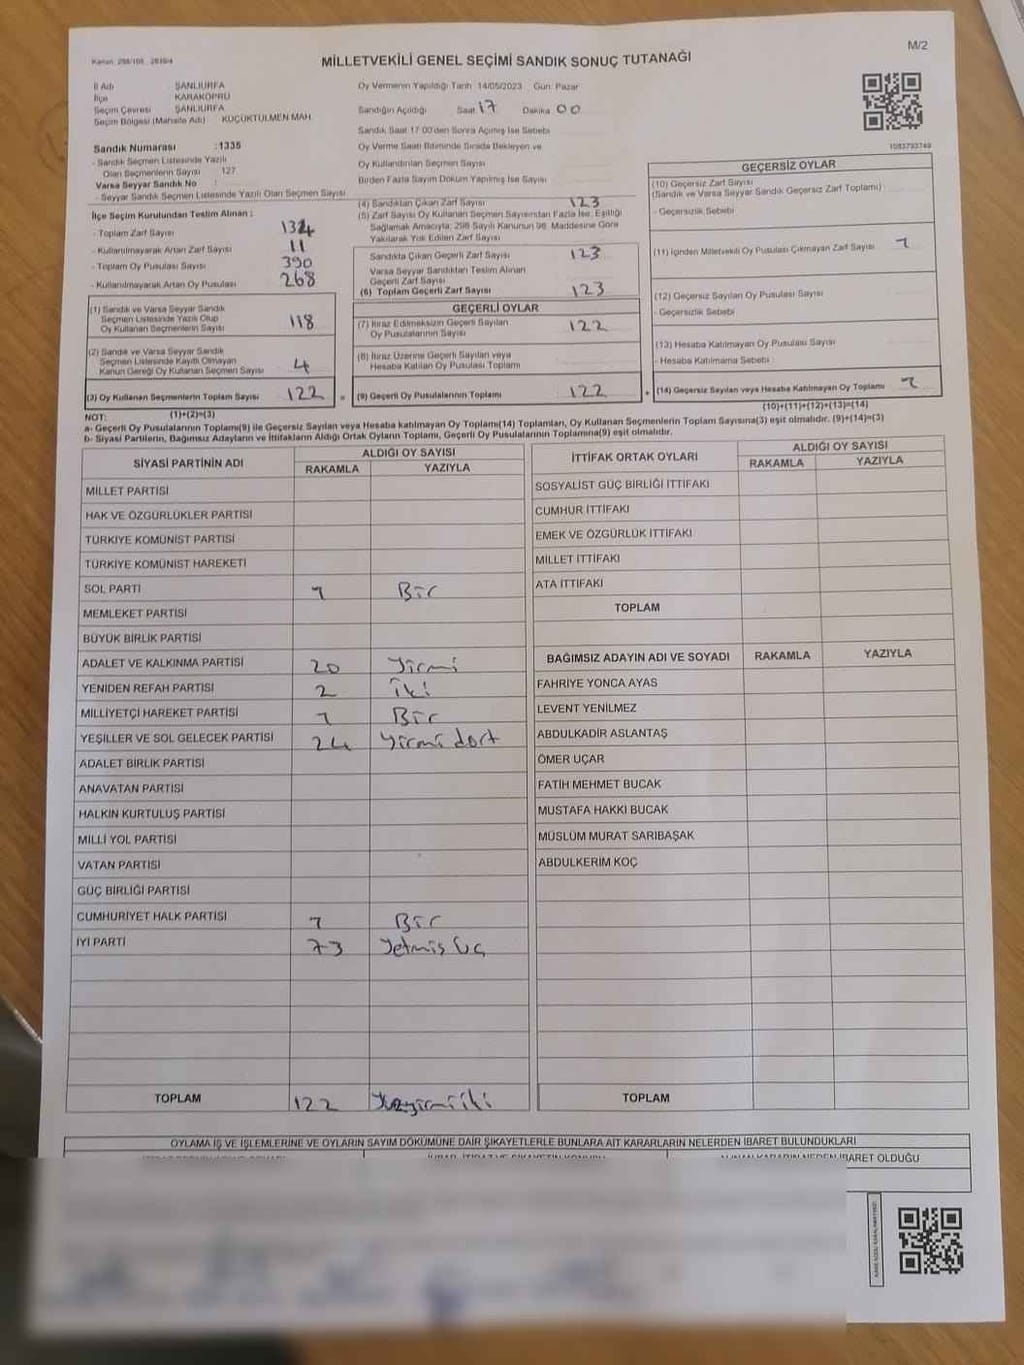 M/2
Kanun: 298/105 , 2839/4
MİLLETVEKİLİ GENEL SEÇİMİ SANDIK SONUÇ TUTANAĞI
İl Adı : ŞANLIURFA
İlçe : KARAKÖPRÜ
Seçim Çevresi : ŞANLIURFA
Seçim Bölgesi (Mahalle Adı) : KÜÇÜKTÜLMEN MAH
Sandık Numarası : 1335
- Sandık Seçmen Listesinde Yazılı
Olan Seçmenlerin Sayısı : 127
Varsa Seyyar Sandık No :
- Seyyar Sandık Seçmen Listesinde Yazılı Olan Seçmen Sayısı
Oy Vermenin Yapıldığı Tarih 14/05/2023 Gün: Pazar
Sandığın Açıldığı Saat 17 Dakika 00
Sandık Saat 17:00'den Sonra Açılmış İse Sebebi
Oy Verme Saati Bitiminde Sırada Bekleyen ve
Oy Kullandırılan Seçmen Sayısı
Birden Fazla Sayım Döküm Yapılmış İse Sayısı
1083793749
İlçe Seçim Kurulundan Teslim Alınan :
- Toplam Zarf Sayısı 134
- Kullanılmayarak Artan Zarf Sayısı 11
- Toplam Oy Pusulası Sayısı 390
- Kullanılmayarak Artan Oy Pusulası 268
(1) Sandık ve Varsa Seyyar Sandık
Seçmen Listesinde Yazılı Olup
Oy Kullanan Seçmenlerin Sayısı 118
(2) Sandık ve Varsa Seyyar Sandık
Seçmen Listesinde Kayıtlı Olmayan
Kanun Gereği Oy Kullanan Seçmen Sayısı 4
(3) Oy Kullanan Seçmenlerin Toplam Sayısı 122 =
(4) Sandıktan Çıkan Zarf Sayısı 123
(5) Zarf Sayısı Oy Kullanan Seçmen Sayısından Fazla İse, Eşitliği
Sağlamak Amacıyla; 298 Sayılı Kanunun 98. Maddesine Göre
Yakılarak Yok Edilen Zarf Sayısı
Sandıkta Çıkan Geçerli Zarf Sayısı 123
Varsa Seyyar Sandıktan Teslim Alınan
Geçerli Zarf Sayısı
(6) Toplam Geçerli Zarf Sayısı 123
GEÇERLİ OYLAR
(7) İtiraz Edilmeksizin Geçerli Sayılan
Oy Pusulalarının Sayısı 122
(8) İtiraz Üzerine Geçerli Sayılan veya
Hesaba Katılan Oy Pusulası Toplamı
(9) Geçerli Oy Pusulalarının Toplamı 122 +
GEÇERSİZ OYLAR
(10) Geçersiz Zarf Sayısı
(Sandık ve Varsa Seyyar Sandık Geçersiz Zarf Toplamı)
- Geçersizlik Sebebi
(11) İçinden Milletvekili Oy Pusulası Çıkmayan Zarf Sayısı 1
(12) Geçersiz Sayılan Oy Pusulası Sayısı
- Geçersizlik Sebebi
(13) Hesaba Katılmayan Oy Pusulası Sayısı
- Hesaba Katılmama Sebebi
(14) Geçersiz Sayılan veya Hesaba Katılmayan Oy Toplamı 1
(10)+(11)+(12)+(13)=(14)
NOT: (1)+(2)=(3)
a- Geçerli Oy Pusulalarının Toplamı(9) ile Geçersiz Sayılan veya Hesaba katılmayan Oy Toplamı(14) Toplamları, Oy Kullanan Seçmenlerin Toplam Sayısına(3) eşit olmalıdır. (9)+(14)=(3)
b- Siyasi Partilerin, Bağımsız Adayların ve İttifakların Aldığı Ortak Oyların Toplamı, Geçerli Oy Pusulalarının Toplamına(9) eşit olmalıdır.
SİYASİ PARTİNİN ADI ALDIĞI OY SAYISI
RAKAMLA YAZIYLA
MİLLET PARTİSİ
HAK VE ÖZGÜRLÜKLER PARTİSİ
TÜRKİYE KOMÜNİST PARTİSİ
TÜRKİYE KOMÜNİST HAREKETİ
SOL PARTİ 1 Bir
MEMLEKET PARTİSİ
BÜYÜK BİRLİK PARTİSİ
ADALET VE KALKINMA PARTİSİ 20 Yirmi
YENİDEN REFAH PARTİSİ 2 İki
MİLLİYETÇİ HAREKET PARTİSİ 1 Bir
YEŞİLLER VE SOL GELECEK PARTİSİ 24 Yirmi dört
ADALET BİRLİK PARTİSİ
ANAVATAN PARTİSİ
HALKIN KURTULUŞ PARTİSİ
MİLLİ YOL PARTİSİ
VATAN PARTİSİ
GÜÇ BİRLİĞİ PARTİSİ
CUMHURİYET HALK PARTİSİ 1 Bir
İYİ PARTİ 73 Yetmiş üç
TOPLAM 122 Yüzyirmiiki
İTTİFAK ORTAK OYLARI ALDIĞI OY SAYISI
RAKAMLA YAZIYLA
SOSYALİST GÜÇ BİRLİĞİ İTTİFAKI
CUMHUR İTTİFAKI
EMEK VE ÖZGÜRLÜK İTTİFAKI
MİLLET İTTİFAKI
ATA İTTİFAKI
TOPLAM
BAĞIMSIZ ADAYIN ADI VE SOYADI RAKAMLA YAZIYLA
FAHRİYE YONCA AYAS
LEVENT YENİLMEZ
ABDULKADİR ASLANTAŞ
ÖMER UÇAR
FATİH MEHMET BUCAK
MUSTAFA HAKKI BUCAK
MÜSLÜM MURAT SARIBAŞAK
ABDULKERİM KOÇ
TOPLAM
OYLAMA İŞ VE İŞLEMLERİNE VE OYLARIN SAYIM DÖKÜMÜNE DAİR ŞİKAYETLERLE BUNLARA AİT KARARLARIN NELERDEN İBARET BULUNDUKLARI
ALINAN KARARIN NEDEN İBARET OLDUĞU